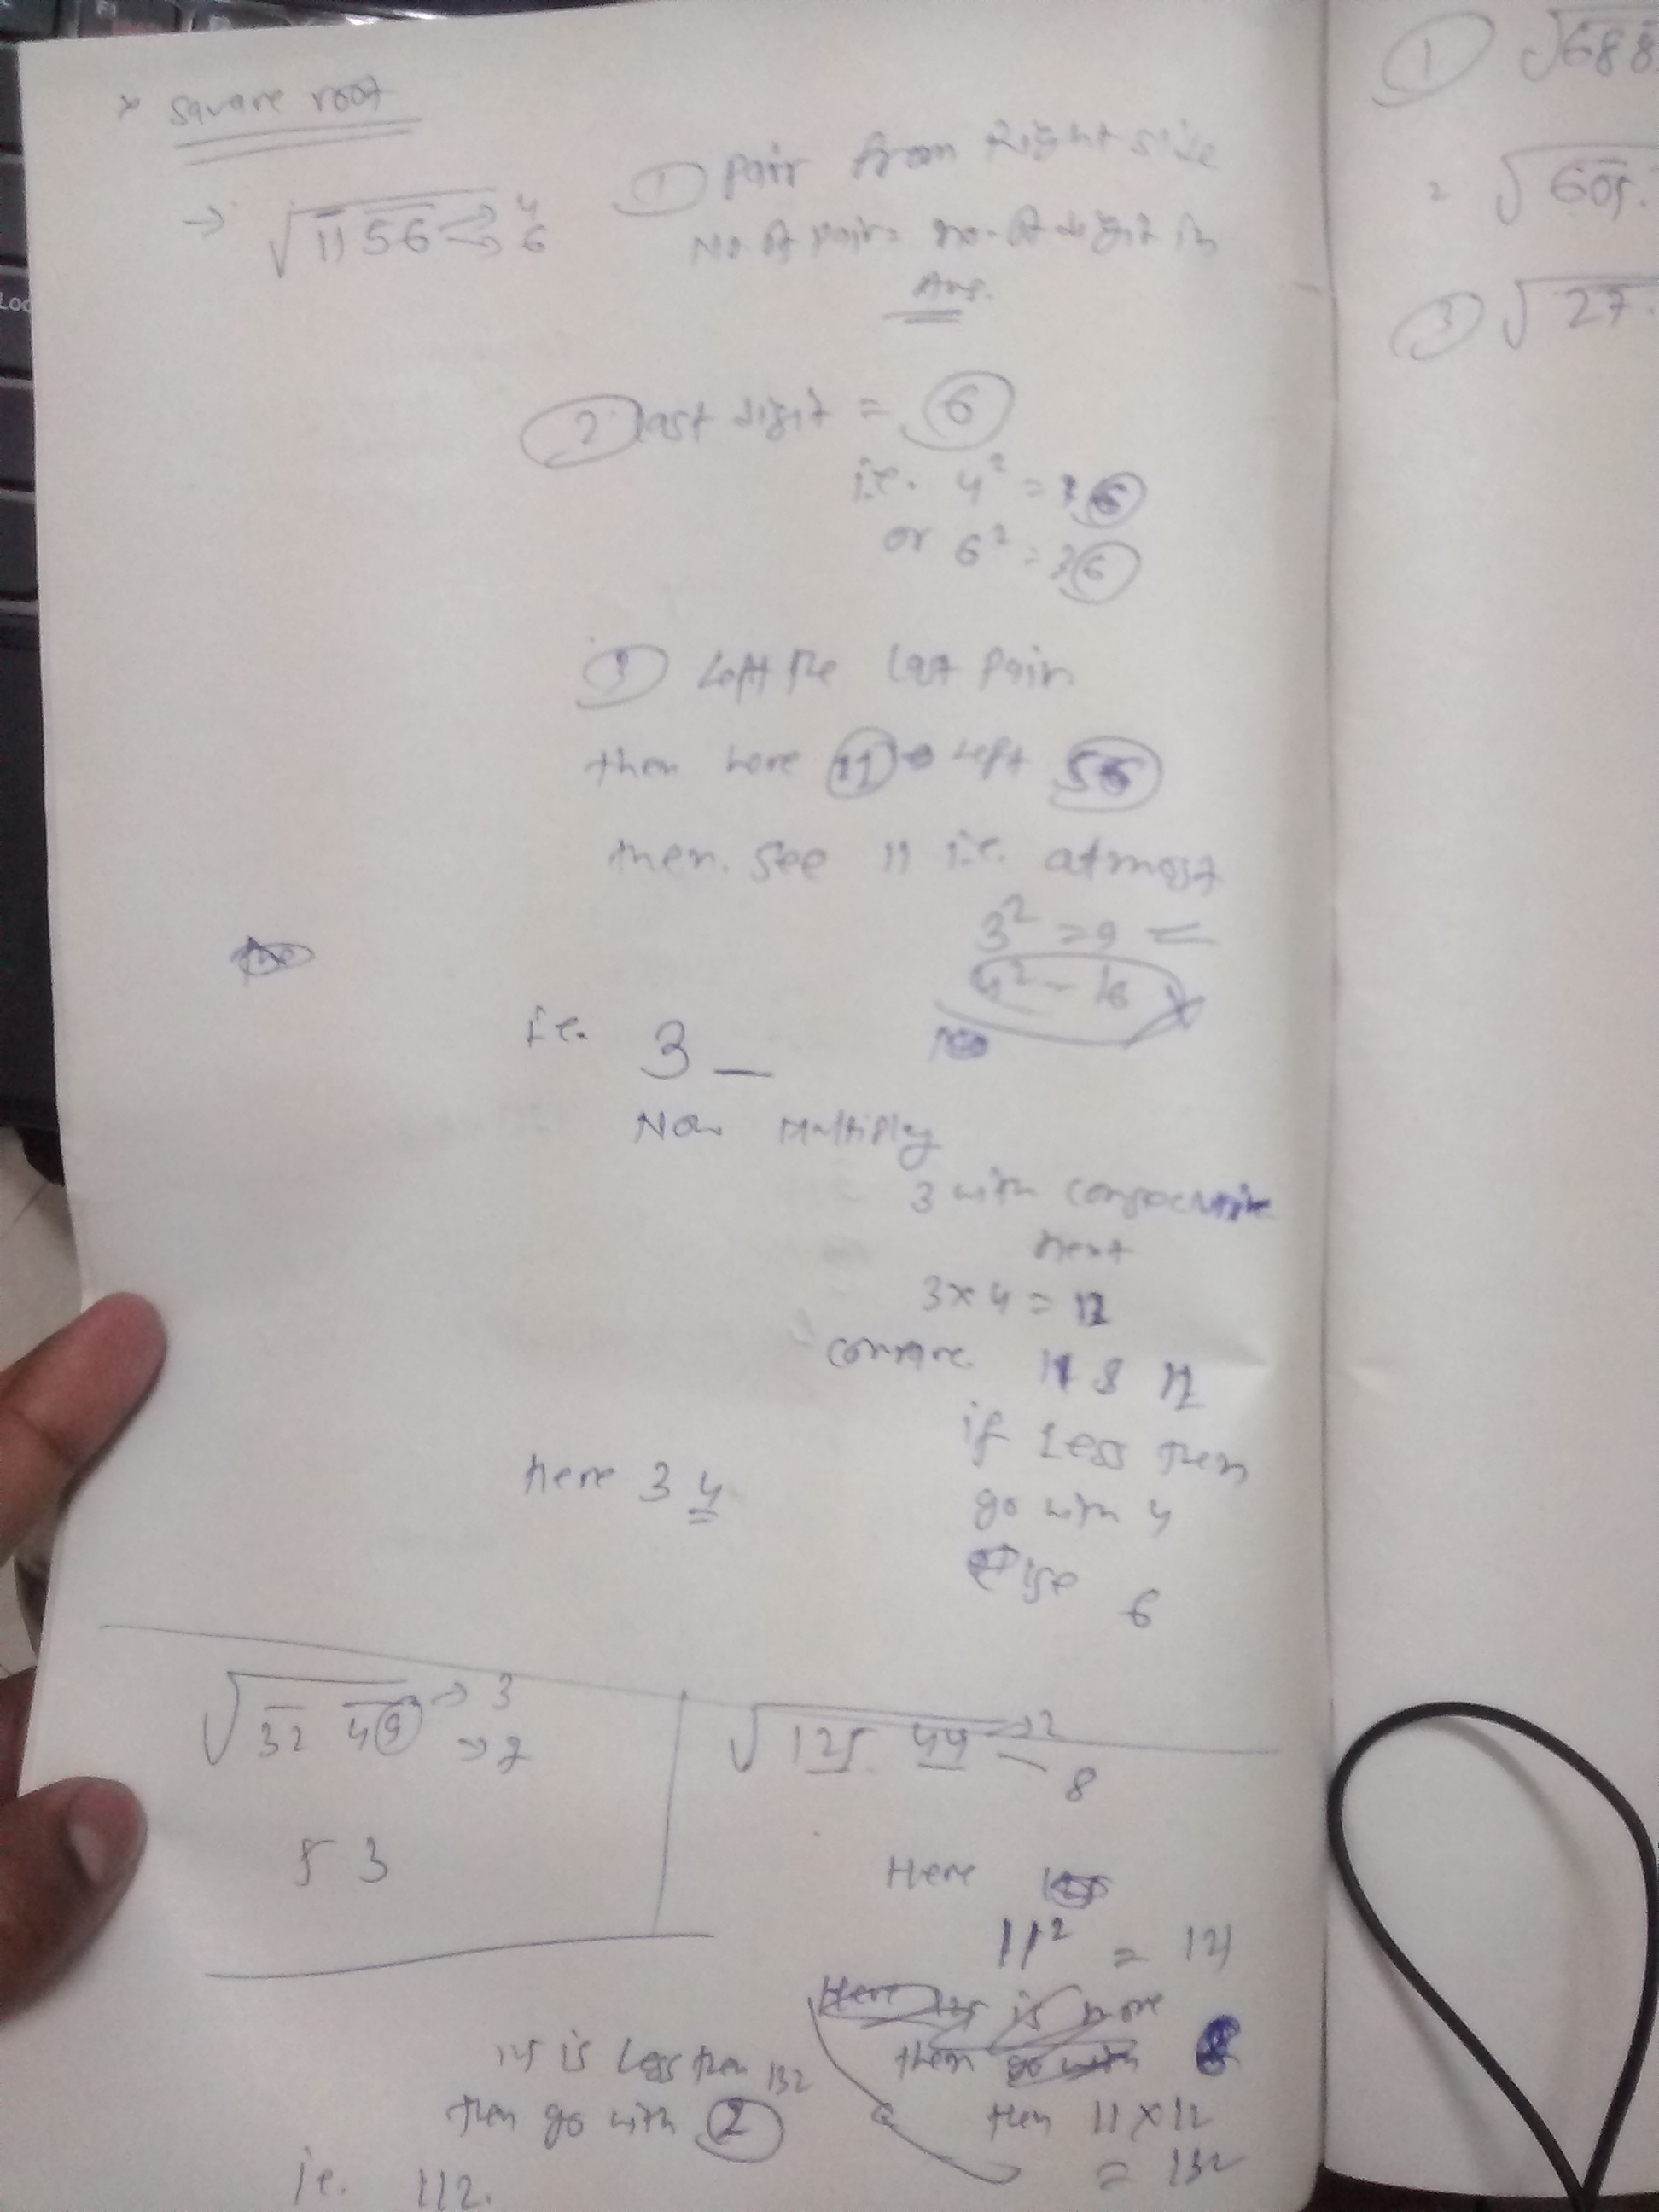 square root
→ √1156 → 4
→ 6
① pair from right side
No. of pair = no. of digit in
Ans.
② last digit = 6
i.e. 4² = 16
or 6² = 36
③ Left the last pair
then here 11 left 56
then see 11 i.e. atmost
3² = 9
4² - 16 ×
i.e. 3 _
Now multiply
3 with consecutive
next
3 × 4 = 12
compare 11 & 12
if less then
go with 4
else 6
here 34
√32 49 → 3
→ 7
53
√125 44 → 2
8
Here
11² = 121
then
then 11 × 12
= 132
125 is less then 132
then go with 2
i.e. 112.
① √688
= √605.
③ √27.
F1
Loc